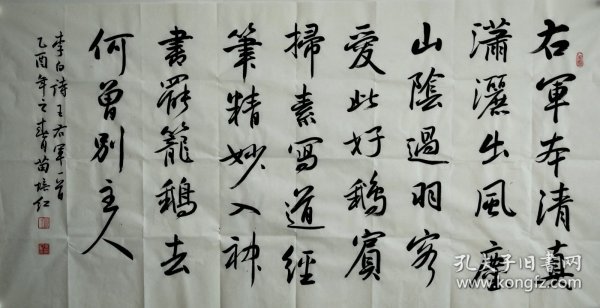 右軍本清真
瀟灑出風塵
山陰過羽客
愛此好鵝賓
掃素寫道經
筆精妙入神
書罷籠鵝去
何曾別主人
李白詩王右軍一首
乙酉年之春苗培红
孔夫子旧书网
kongfz.com